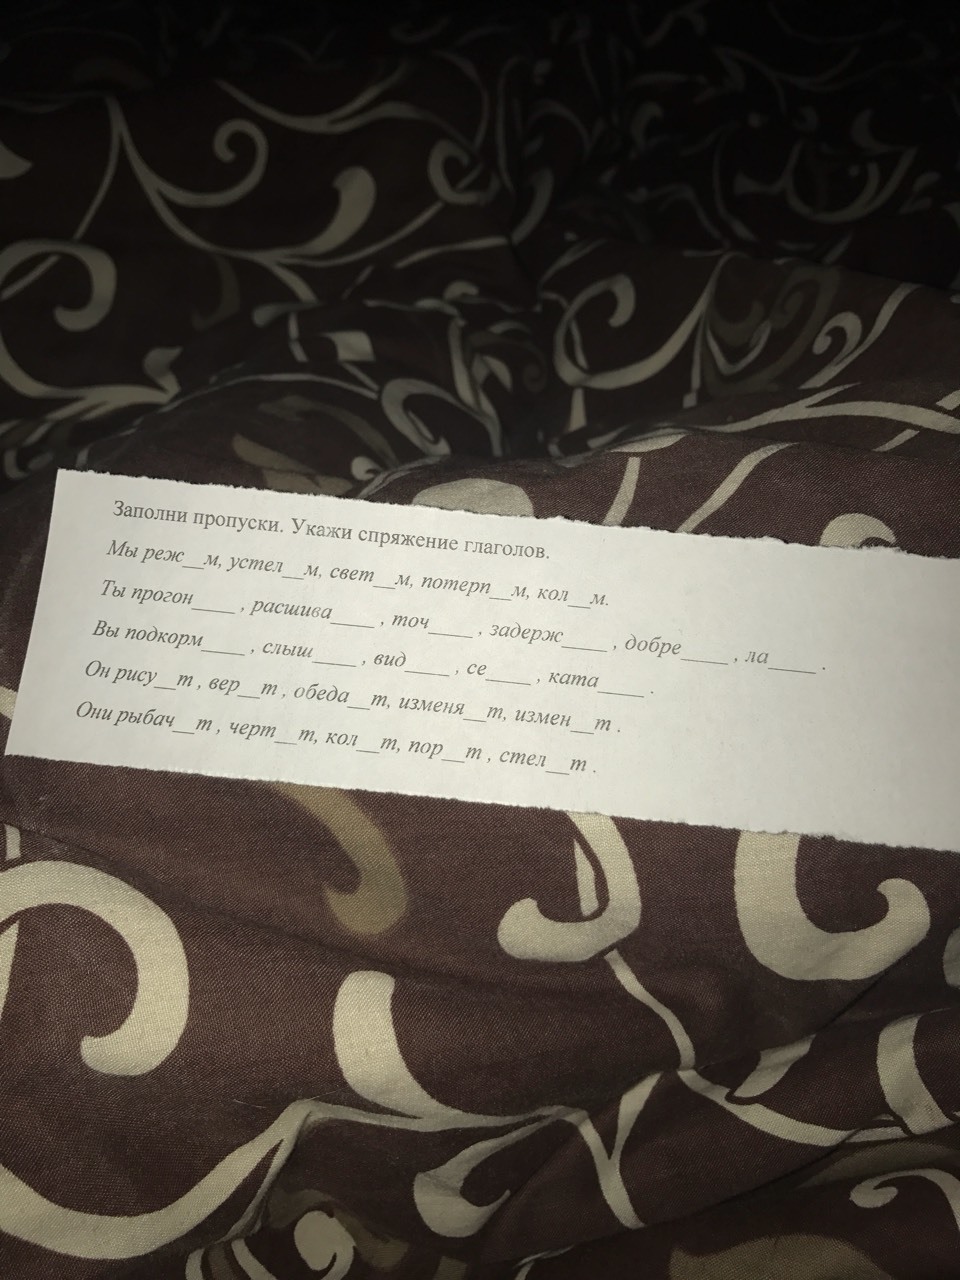 Заполни пропуски. Укажи спряжение глаголов.
Мы реж__м, устел__м, свет__м, потерп__м, кол__м.
Ты прогон____ , расшива____ , точ____ , задерж____ , добре____ , ла____ .
Вы подкорм____ , слыш____ , вид____ , се____ , ката____ .
Он рису__т , вер__т , обеда__т, изменя__т, измен__т .
Они рыбач__т , черт__т, кол__т, пор__т , стел__т .